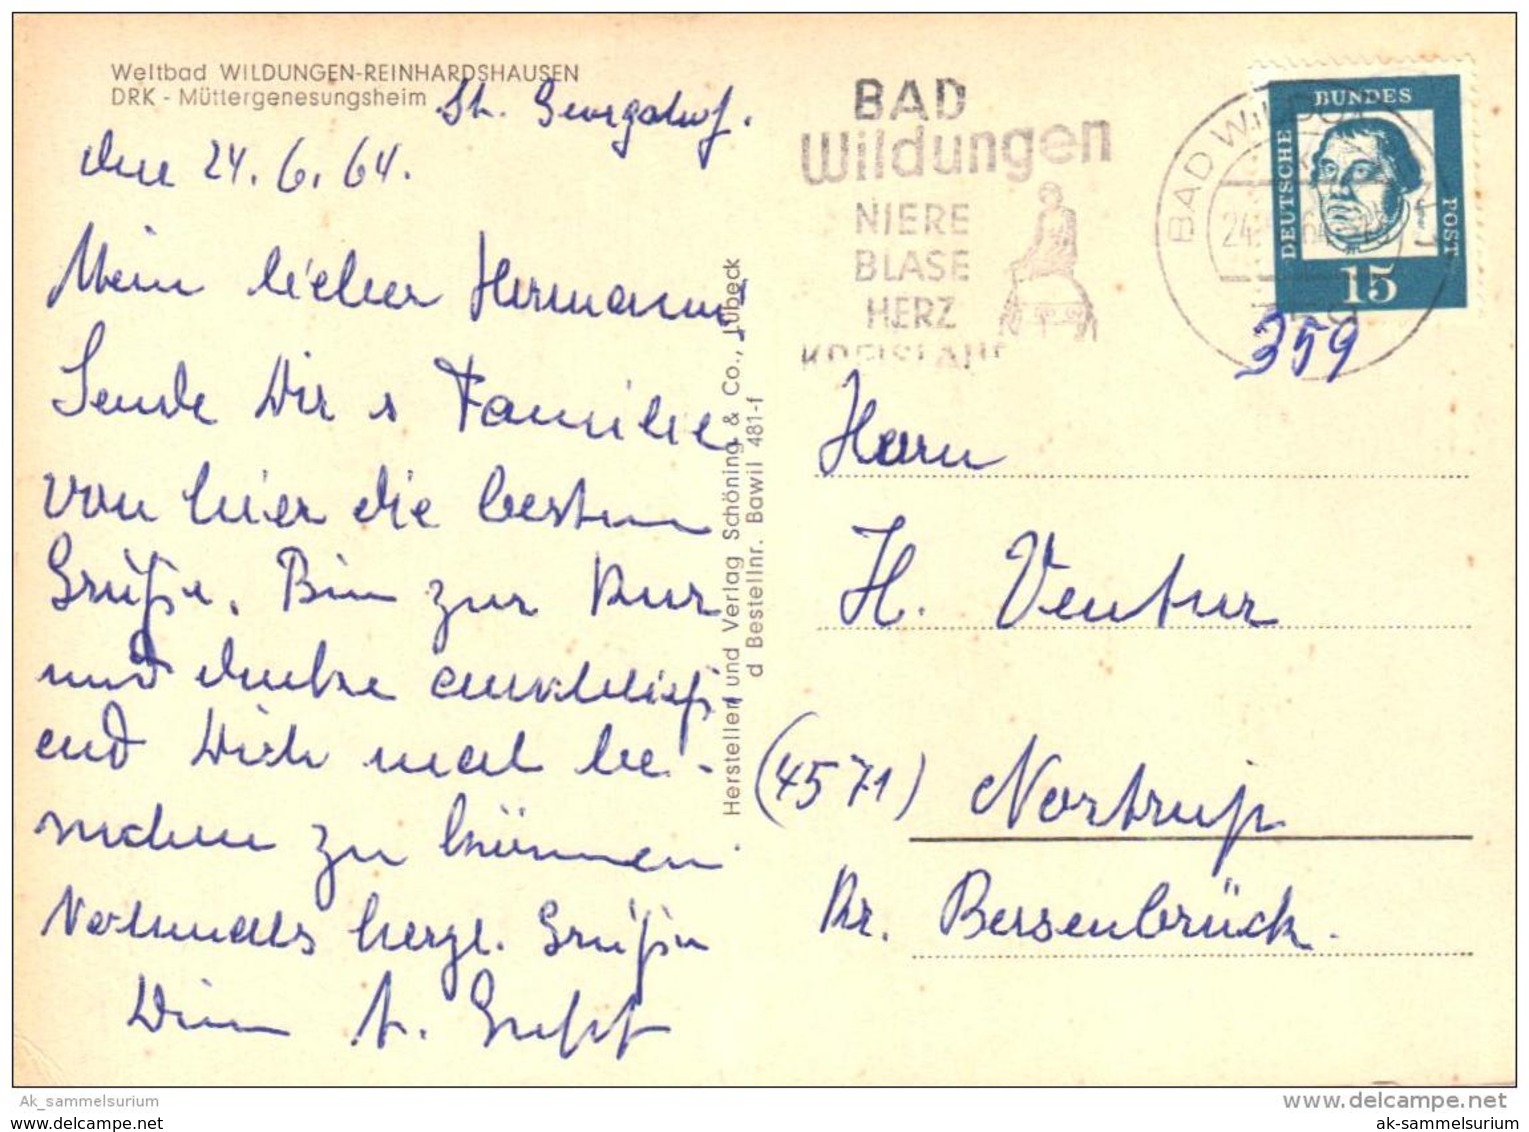 Weltbad WILDUNGEN-REINHARDSHAUSEN
DRK - Müttergenesungsheim
St. Georgshof.
den 24. 6. 64.
Mein lieber Hermann,
Sende Dir u Familie
von hier die besten
Grüße. Bin zur Kur
und denke anschließ
end Dich mal be-
suchen zu können
Nochmals herzl. Grüße
Dein A.
Hersteller und Verlag Schöning & Co., Lübeck
d Bestellnr. Bawil 481-f
BAD
Wildungen
NIERE
BLASE
HERZ
KREISLAUF
BAD WILDUNGEN
24. 64
DEUTSCHE
BUNDES
POST
15
359
Herrn
H. Ventur
(4571) Nortrup
Kr. Bersenbrück.
Ak_sammelsurium
www.delcampe.net
www.delcampe.net
ak-sammelsurium